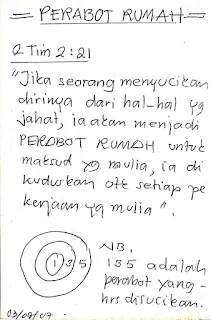 = PERABOT RUMAH =
2 Tim 2:21
"Jika seorang menyucikan
dirinya dari hal-hal yg
jahat, ia akan menjadi
PERABOT RUMAH untuk
maksud yg mulia, ia di
kuduskan utk setiap pe
kerjaan yg mulia".
1 3 5
NB.
135 adalah
perabot yang
hrs disucikan.
03/09/07.